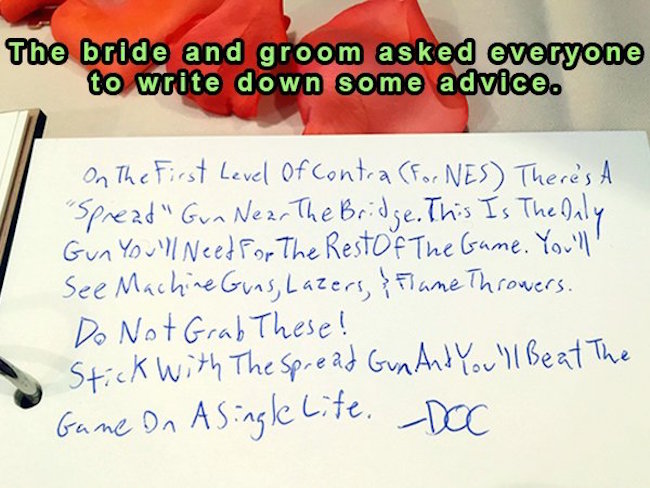 The bride and groom asked everyone
to write down some advice.
On The First Level Of Contra (For NES) There's A
"Spread" Gun Near The Bridge. This Is The Only
Gun You'll Need For The Rest Of The Game. You'll
See Machine Guns, Lazers, & Flame Throwers.
Do Not Grab These!
Stick With The Spread Gun And You'll Beat The
Game On A Single Life. -DOC